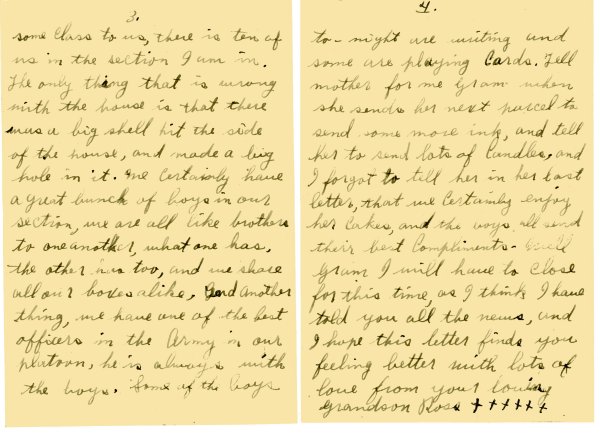 3.
some Class to us, there is ten of
us in the section I am in.
The only thing that is wrong
with the house is that there
was a big shell hit the side
of the house, and made a big
hole in it. We Certainly have
a great bunch of boys in our
section, we are all like brothers
to one another, what one has,
the other has too, and we share
all our boxes alike. And another
thing, we have one of the best
officers in the Army in our
platoon, he is always with
the boys. Some of the boys
4.
to-night are writing and
some are playing Cards. Tell
mother for me Gram when
she sends her next parcel to
send some more ink, and tell
her to send lots of Candles, and
I forgot to tell her in her last
letter, that we Certainly enjoy
her Cakes, and the boys, all send
their best Compliments- Well
Gram I will have to Close
for this time, as I think I have
told you all the news, and
I hope this letter finds you
feeling better with lots of
love from your loving
Grandson Ross ++++++